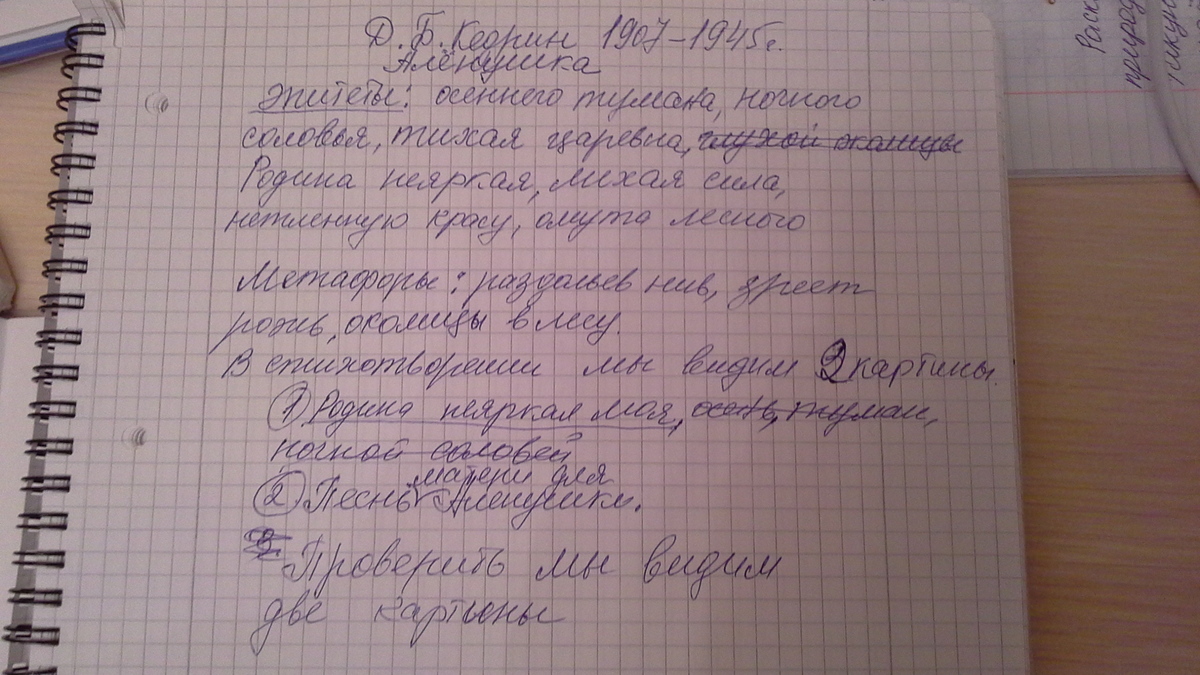 Д. Б. Кедрин 1907-1945г.
Алёнушка
Эпитеты: осеннего тумана, ночного
соловья, тихая царевна, глухой околицы
Родина неяркая, лихая сила,
нетленную красу, омута лесного
Метафоры: раздольев нив, зреет
рожь, околицы в лесу.
В стихотворении мы видим 2 картины.
1 Родина неяркая моя, осень, туман,
ночной соловей
матери для
2 Песнь Аленушки.
3. Проверить мы видим
две картины
Раск
природ